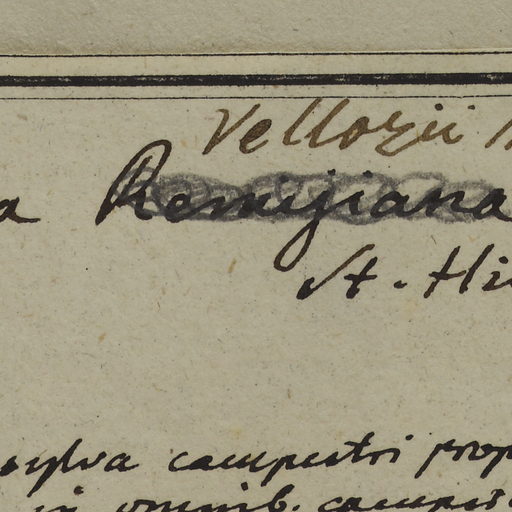 Vellozii
a Remijiana
St. Hi
sylva campestri prop
in omnib. campis